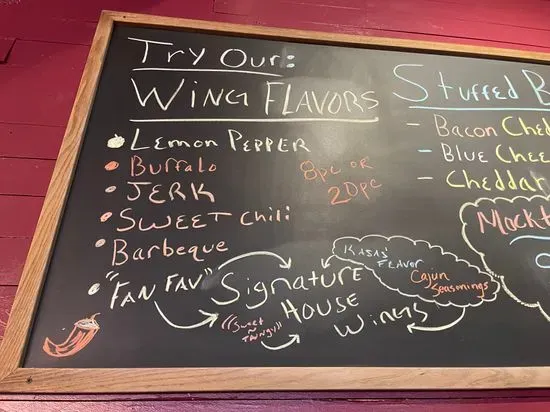 Try Our:
Wing Flavors
Lemon Pepper
Buffalo
Jerk
Sweet Chili
Barbeque
"Fan Fav"
8pc or
20pc
Signature
House
Wings
((Sweet
N
Tangy))
Kasas'
Flavor
Cajun
Seasonings
Stuffed B
- Bacon Che
- Blue Chee
- Cheddar
Mockt